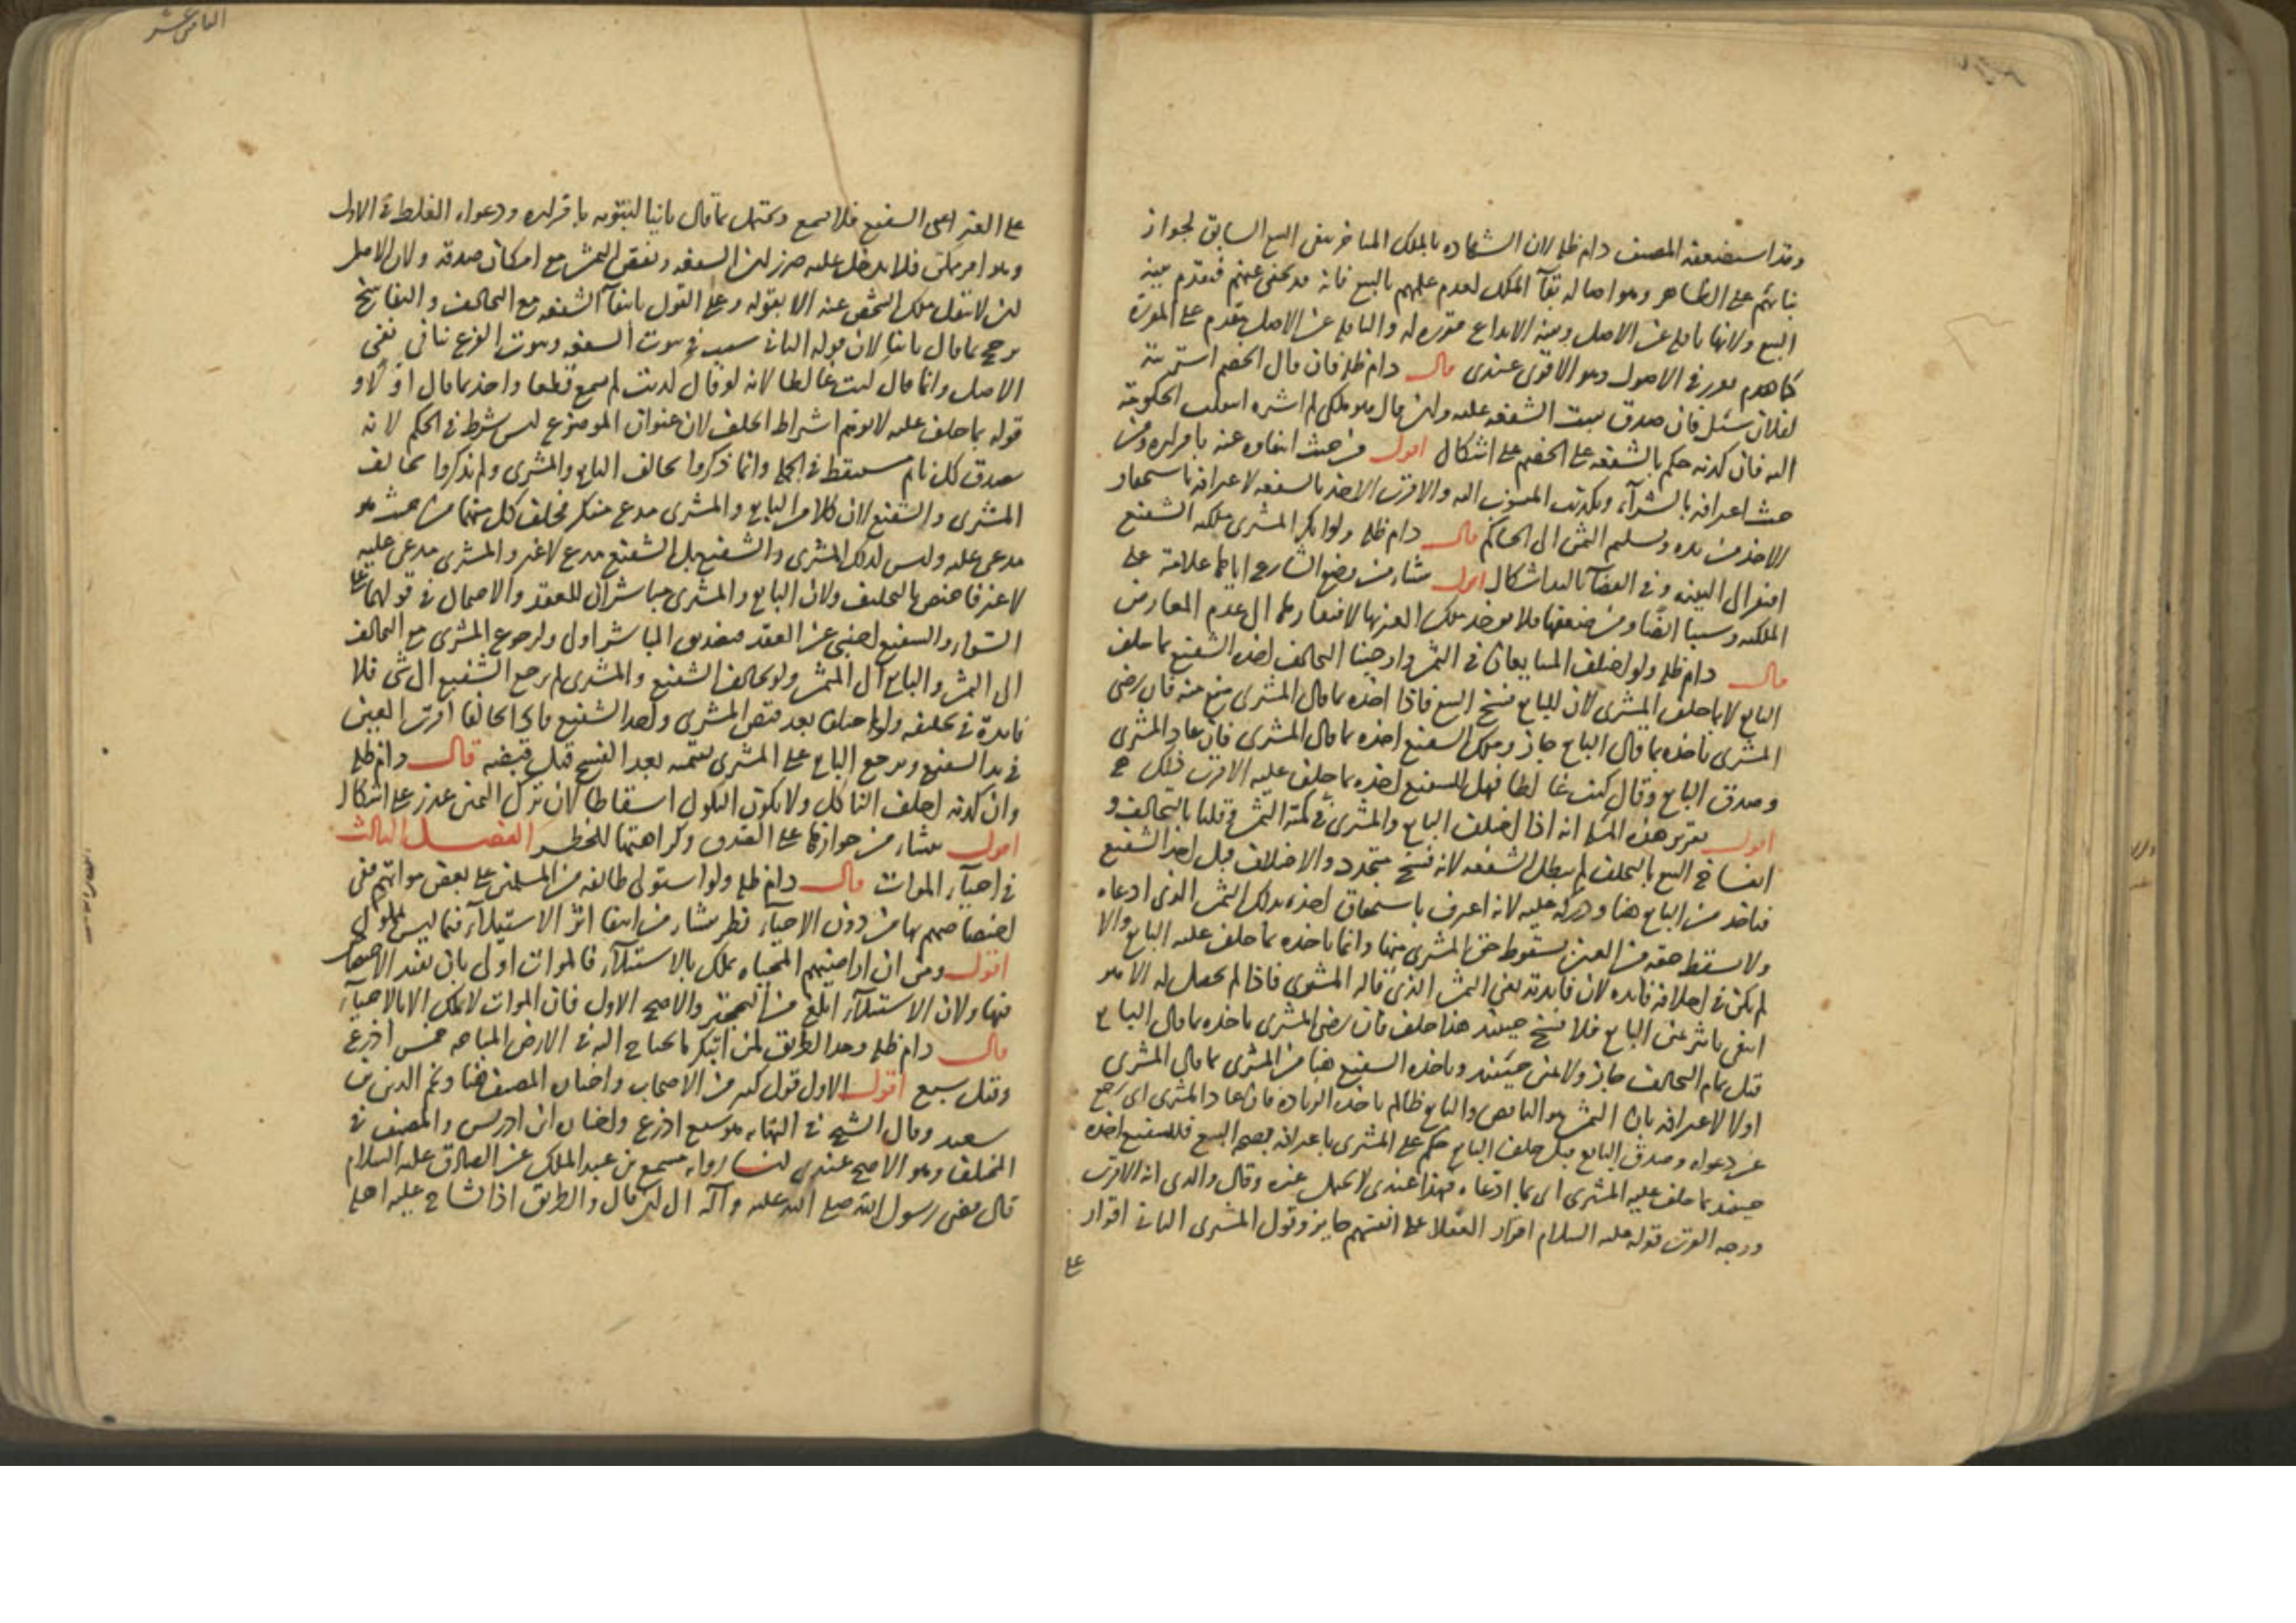 وقد استضعفه المصنف دام ظله لان الشهادة بالملك المتاخر ينفى البيع السابق لجواز
بنائهم على الظاهر وهو اصالة بقآ الملك لعدم علمهم بالبيع فانه قد يخفى عنهم فتقدم بينة
البيع ولانها ناقلة عن الاصل وبينة الايداع مقررة له والناقلة عن الاصل يتقدم على المقررة
كما هو مقرر في الاصول وهو الاقوى عندى قال دام ظله فان قال الخصم اشتريته
لفلان سئل فان صدق ثبت الشفعة عليه وان قال هو ملكى لم اشتره انتقلت الحكومة
اليه فان كذبه حكم بالشفعة على الخصم على اشكال اقول من حيث انتفاؤه عنه باقراره ومن
حيث اعترافه بالشرآء وتكذيب المنسوب اليه والاقرب الاخذ بالشفعة لاعترافه باستحقاق
الاخذ من يده وتسليم الثمن الى الحاكم قال دام ظله ولو انكر المشترى ملكية الشفيع
افتقر الى البينة وفي القضآ باليد اشكال اقول منشاءه من وضع الشارع اياها علامة على
الملكية وسببا ومن ضعفها فلا يوخذ ملك الغير بها لافتقارها الى عدم المعارض
قال دام ظله ولو اختلف المتبايعان في الثمن واوجبنا التحالف اخذه الشفيع بما حلف
البايع لا بما حلف المشترى لان للبايع فسخ البيع فاذا اخذه بما قال المشترى منع منه فان رضى
المشترى باخذه بما قال البايع جاز وملك الشفيع اخذه بما قال المشترى فان عاد المشترى
وصدق البايع وقال كنت غالطا فهل للشفيع اخذه بما حلف عليه الاقرب ذلك
اقول تقرير هذه المسئلة انه اذا اختلف البايع والمشترى في كمية الثمن وقلنا بالتحالف و
انفساخ البيع بالتحالف لم يبطل الشفعة لانه فسخ متجدد والاختلاف قبل اخذ الشفيع
فياخذ من البايع هنا ودركه عليه لانه اعترف باستحقاق اخذه بذلك الثمن الذى ادعاه
ولا يسقط حقه من العين بسقوط حق المشترى منها وانما ياخذه بما حلف عليه البايع والا
لم يكن في احلافه فايدة لان فايدته نفى الثمن الذى قاله المشترى فاذا لم يحصل له الا هو
انتفى تاثر يمين البايع فلا فسخ حينئذ هذا حلف فان رضى المشترى باخذه بما قال البايع
قبل تمام التحالف جاز ولا يمين حينئذ وياخذه الشفيع هنا من المشترى بما قال المشترى
اولا لاعترافه بان الثمن هو الناقص والبايع ظالم باخذ الزيادة فان عاد المشترى اى رجع
عن دعواه وصدق البايع قبل حلف البايع حكم على المشترى باعترافه بصحة البيع فللشفيع اخذه
حينئذ بما حلف عليه المشترى اى بما ادعاه فهذا عندى لا يحتمل غيره وقال والدى انه الاقرب
ووجه القرب قوله عليه السلام اقرار العقلاء على انفسهم جايز وقول المشترى الثانى اقرار
على
على الغير اعنى الشفيع فلا يسمع ويحتمل بما قال ثانيا لثبوته باقراره ودعواه الغلط في الاول
وهو امر ممكن فلا يدخل عليه ضرر لحق الشفعة ونقص الثمن مع امكان صدقه ولان الاصل
ان لا ينتقل ملك الشخص عنه الا بقوله وعلى القول بانتفآ الشفعة مع التحالف والتفاسخ
يرجح بما قال ثانيا لان قوله الثانى سبب في ثبوت الشفعة وثبوت الفرع ينافى نفى
الاصل وانما قال كنت غالطا لانه لو قال كذبت لم يسمع قطعا واخذ بما قال اولا و
قوله بما حلف عليه لا يوهم اشتراط الحلف لان عنوان الموضوع ليس شرط في الحكم لانه
يصدق كل نائم مستيقظ في الجملة وانما ذكروا تحالف البايع والمشترى ولم يذكروا تحالف
المشترى والشفيع لان كلا من البايع والمشترى مدع منكر فحلف كل منهما من حيث هو
مدعى عليه وليس كذلك المشترى والشفيع بل الشفيع مدع لا غير والمشترى مدعى عليه
لا غير فاختص بالتحليف ولان البايع والمشترى مباشران للعقد والاحتمال في قولهما على
السواء والشفيع اجنبى عن العقد فتصديق المباشر اولى ولرجوع المشترى مع التحالف
الى الثمن والبايع الى المثمن ولو تحالف الشفيع والمشترى لم يرجع الشفيع الى شى فلا
فايدة في تحليفه ولو اختلفا بعد قبض المشترى واخذ الشفيع فاذا تحالفا اقرت العين
في يد الشفيع ويرجع البايع على المشترى بقيمته بعد الفسخ قبل قبضه قال دام ظله
وان كذبه احلف الناكل ولا يكون النكول اسقاطا لان ترك اليمين عذر على اشكال
اقول ينشاء من جوازها على الصدق وكراهتها للخطر الفصل الثالث
في احيآء الموات قال دام ظله ولو استولى طايفة من المسلمين على بعض مواتهم ففى
اختصاصهم بها من دون الاحيآء نظر ينشاء من انتفا اثر الاستيلآء فيما ليس بمملوك
اقول ومن ان اراضيهم المحياه يملك بالاستيلآء فالموات اولى بان يفيد الاختصاص
فيها ولان الاستيلآء ابلغ من التحجير والاصح الاول فان الموات لا يملك الا بالاحيآء
قال دام ظله وحد الطريق لمن ابتكر ما يحتاج اليه في الارض المباحة خمس اذرع
وقيل سبع اقول الاول قول كثير من الاصحاب واختاره المصنف هنا ونجم الدين بن
سعيد وقال الشيخ في النهاية هو سبع اذرع واختاره ابن ادريس والمصنف في
المختلف وهو الاصح عندى لنا ما رواه مسمع بن عبد الملك عن الصادق عليه السلام
قال قضى رسول الله صلى الله عليه وآله الى ان قال والطريق اذا تشاح عليه اهله